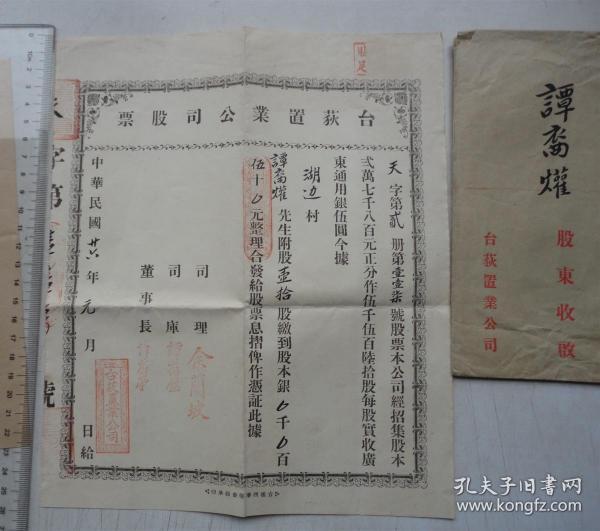 台荻置業公司股票
天字第貳册第壹壹柒號股票本公司經招集股本
弍萬七千八百元正分作伍千伍百陸拾股每股實收廣
東通用銀伍圓今據
湖边村
譚裔燿先生附股壹拾股繳到股本銀0千0百
伍十0元整理合發給股票息摺俾作憑証此據
司理 余蘭坡
司庫
董事長
中華民國廿六年元月 日給
字第
號
台荻置業公司
譚裔燿
股東收啟
台荻置業公司
孔夫子旧书网
www.kongfz.com